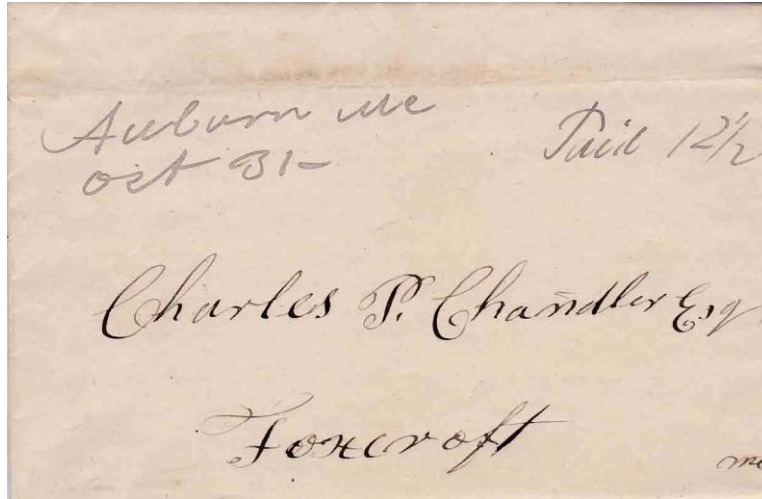 Auburn Me
Oct 31-
Paid 12 1/2
Charles P. Chandler Esqr
Foxcroft
Me